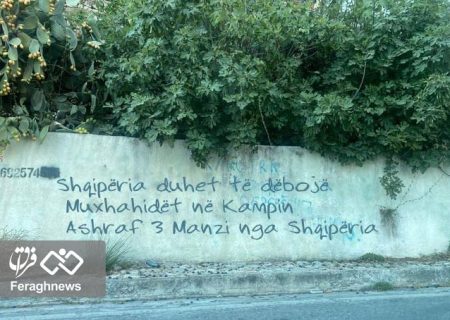 692574
Shqipëria duhet të dëbojë
Muxhahidët në Kampin
Ashraf 3 Manzi nga Shqipëria
فراق
Feraghnews